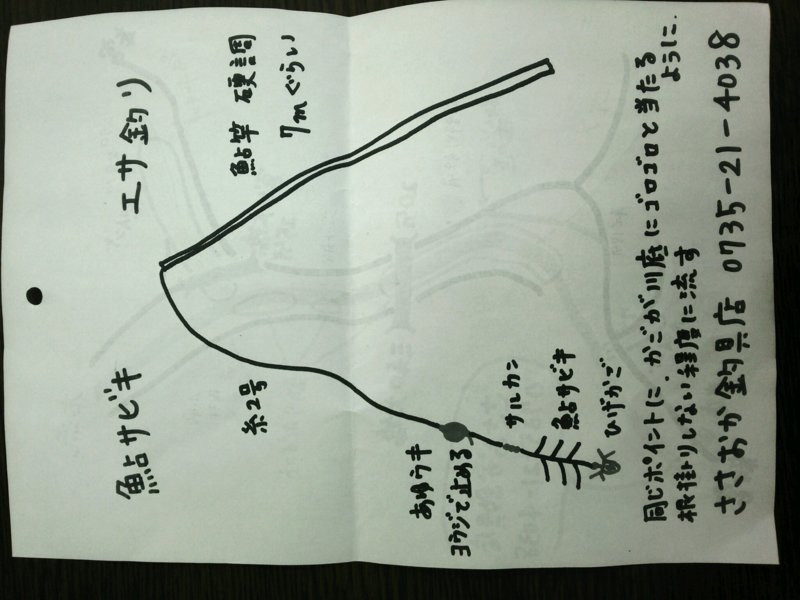 鮎サビキ　エサ釣り
鮎竿 硬調
7mぐらい
糸2号
あゆウキ
ヨウジで止める
サルカン
鮎サビキ
ひげかご
同じポイントに、かごが川底にゴロゴロと当たる
ように、
根掛りしない程度に流す
ささおか釣具店 0735-21-4038